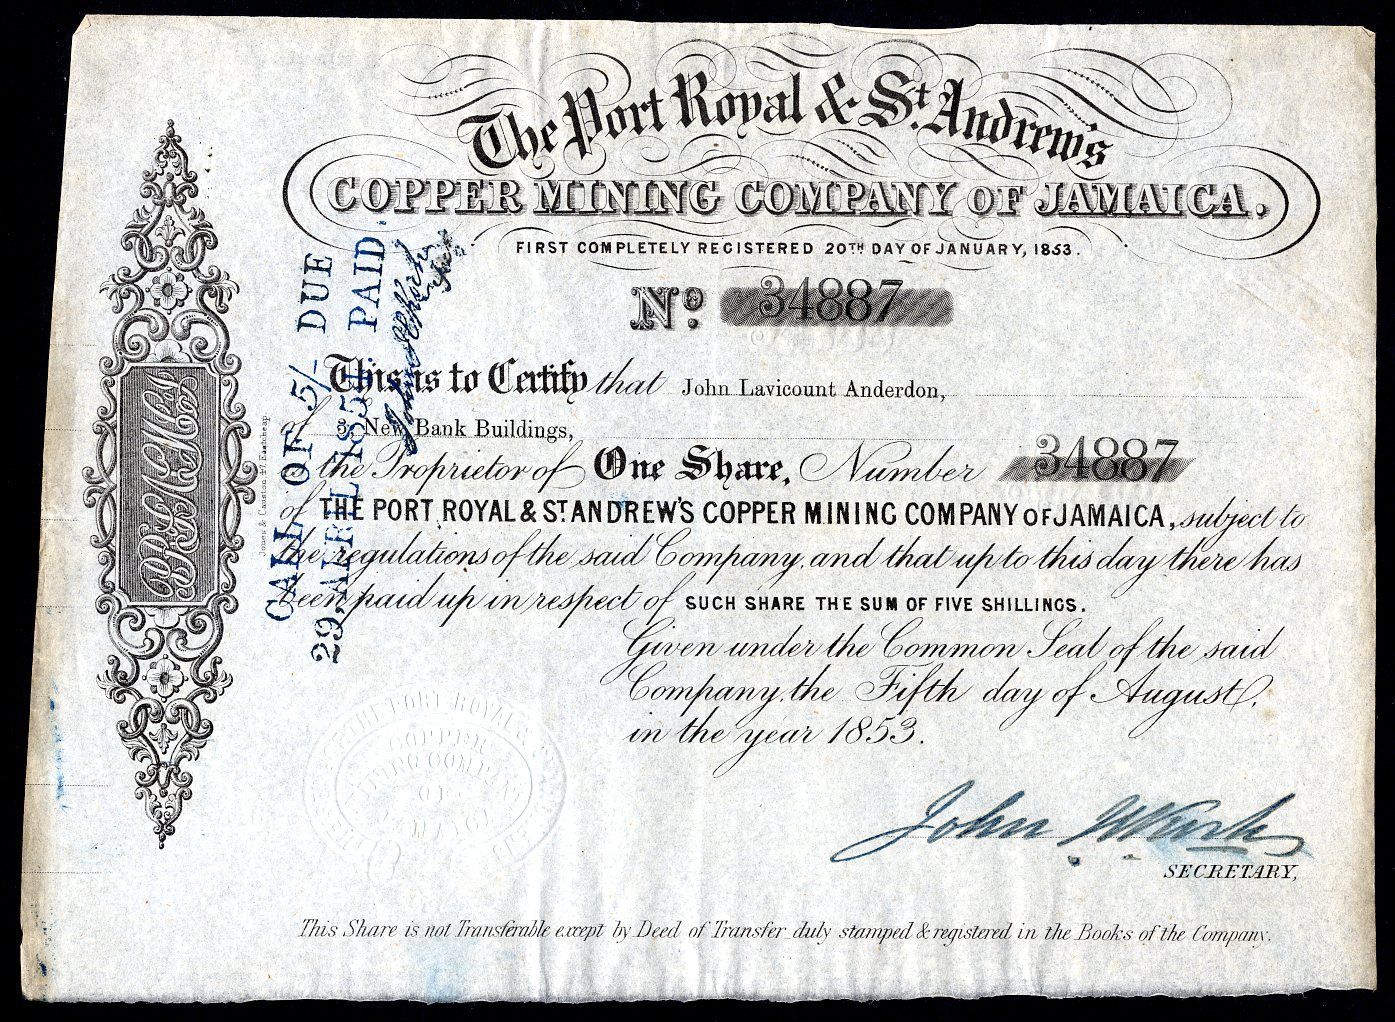 The Port Royal & St. Andrew's
COPPER MINING COMPANY OF JAMAICA.
FIRST COMPLETELY REGISTERED 20TH DAY OF JANUARY, 1853.
No. 34887
This is to Certify that John Lavicount Anderdon,
of 3, New Bank Buildings,
is the Proprietor of One Share, Number 34887
of THE PORT ROYAL & ST. ANDREW'S COPPER MINING COMPANY OF JAMAICA, subject to
the regulations of the said Company, and that up to this day there has
been paid up in respect of SUCH SHARE THE SUM OF FIVE SHILLINGS.
Given under the Common Seal of the said
Company, the Fifth day of August,
in the year 1853.
John
SECRETARY,
This Share is not Transferable except by Deed of Transfer duly stamped & registered in the Books of the Company.
CALL OF 5/- DUE
29, APRIL 1854. PAID.
Jones & Causton 47 Eastcheap
THE PORT ROYAL &
COPPER
MINING COMPANY
OF
JAMAICA